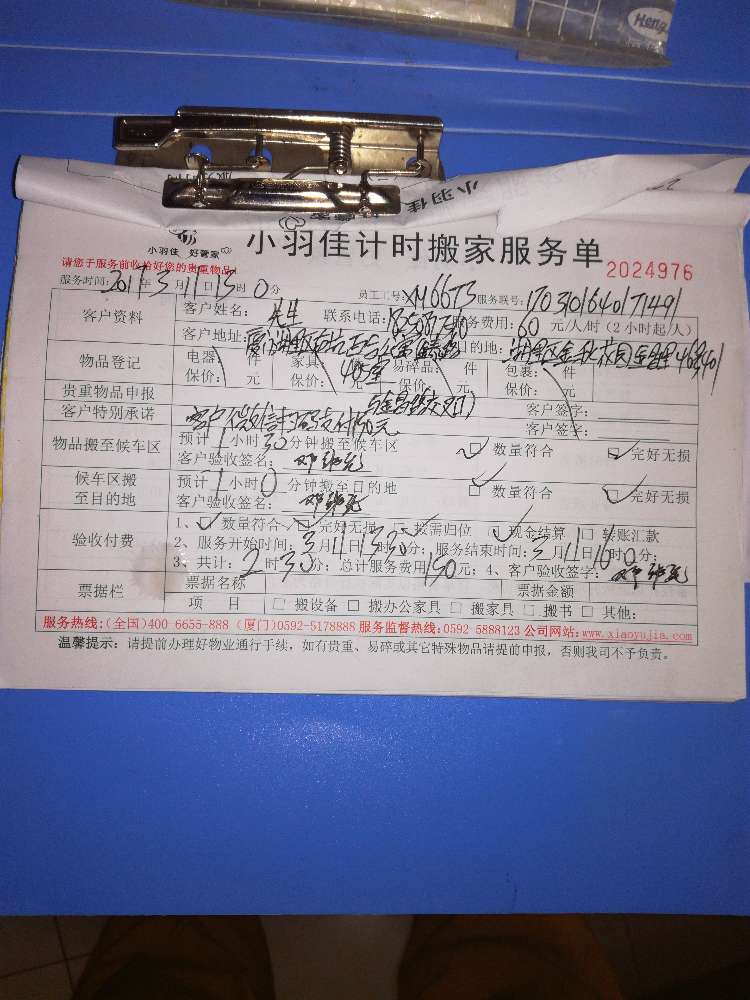 Heng
小羽佳
小羽佳 好管家
小羽佳计时搬家服务单
2024976
请您于服务前收拾好您的贵重物品!
服务时间: 2017年3月11日13时0分 员工工号: XM6673 服务联号: 1703101640171491
客户资料 客户姓名: 先生 联系电话: 服务费用: 60 元/人/时 (2小时起/人)
客户地址: 目的地:
物品登记 电器: 件 家具: 件 易碎品: 件 包裹: 件
保价: 元 保价: 元 保价: 元 保价: 元
贵重物品申报 客户签字:
客户特别承诺 客户微信扫码支付150元 客户签字:
物品搬至候车区 预计1小时30分钟搬至候车区 数量符合 完好无损
客户验收签名:
候车区搬至目的地 预计1小时0分钟搬至目的地 数量符合 完好无损
客户验收签名:
验收付费 1、 数量符合 完好无损 按需归位 现金结算 转账汇款
2、服务开始时间: 3月11日13时30分; 服务结束时间: 3月11日16时0分;
3、共计: 2时30分; 总计服务费用150元; 4、客户验收签字:
票据栏 票据名称 票据金额
项 目 搬设备 搬办公家具 搬家具 搬书 其他:
服务热线:(全国)400 6655-888 (厦门)0592-5178888 服务监督热线:0592 5888123 公司网站:www.xiaoyujia.com
温馨提示: 请提前办理好物业通行手续, 如有贵重、易碎或其它特殊物品请提前申报, 否则我司不予负责。